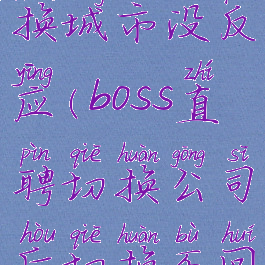 换城市没反
yīng zhí
应(boss直
pìn qiē huàn gōng sī
聘切换公司
hòu qiē huàn bù huí
后切换不回